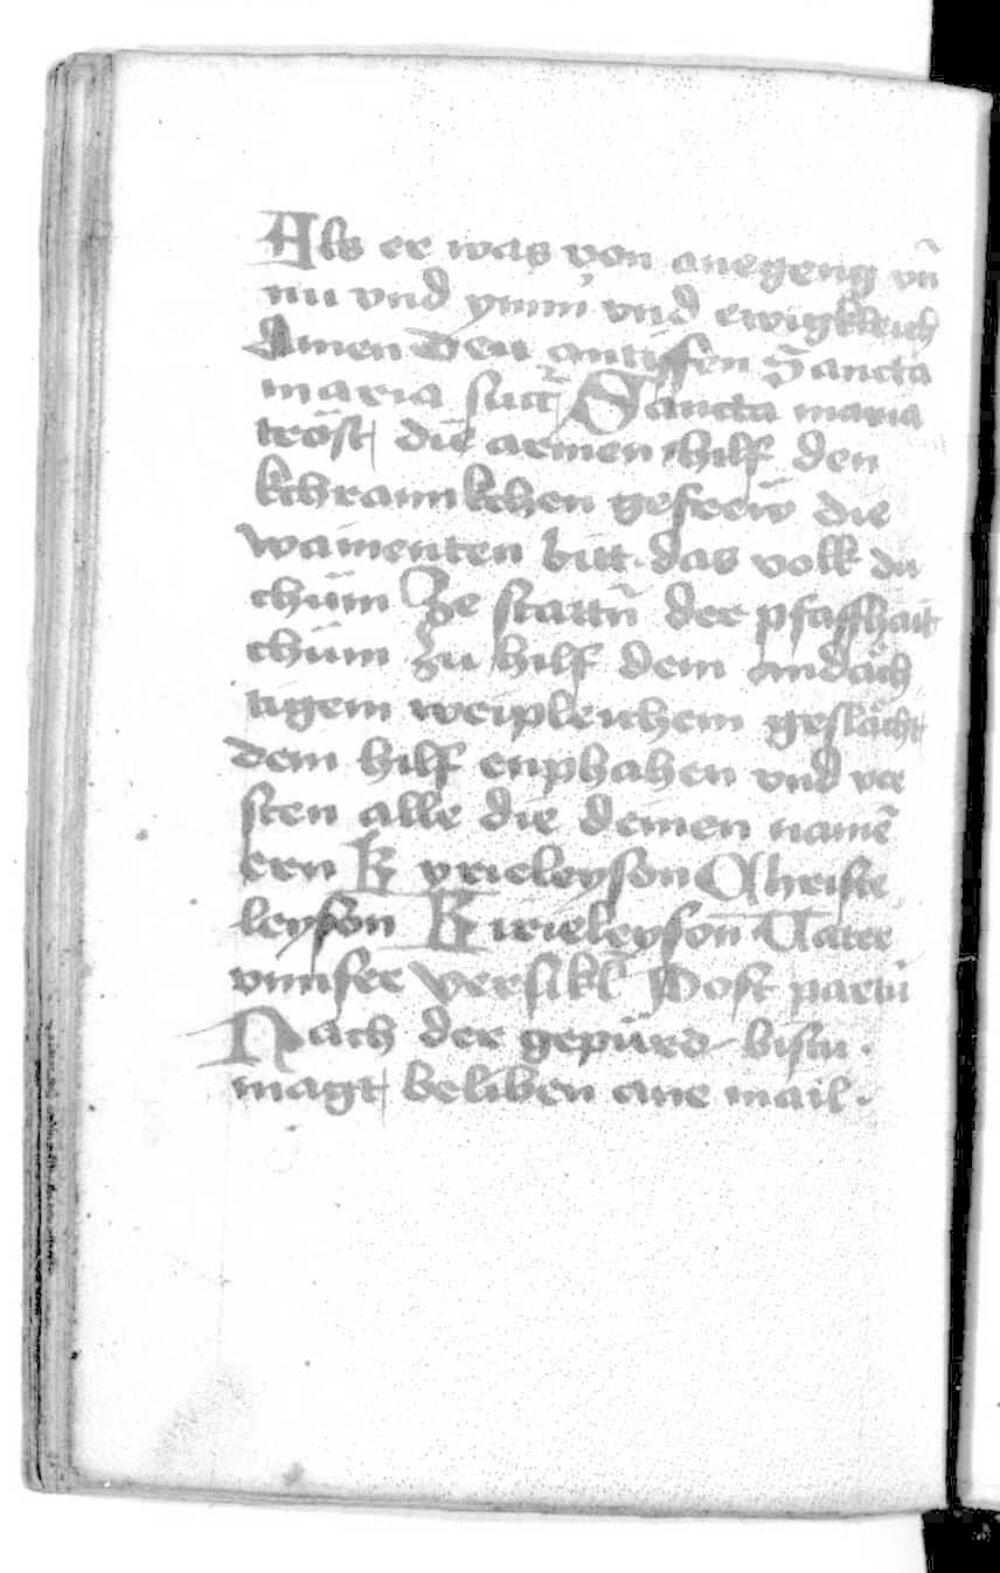 Als er was von anegeng vn̄
nu vnd ymm̄ vnd ewigkleich
Amen Der antiffen Sancta
maria succ̄ Sancta maria
tröst die armen hilf den
kchrannkchen gefreẅ die
wainenten bitt das volk du
chüm Ze stattn̄ der pfaffhait
chüm zu hilf dem andäch
tigem weipleichem geslächt
dem hilf enphahen vnd ver
sten alle die deinen namē
ern Kyrieleyson Christe
leyson Kirieleyson Vater
vnnser Versikl̄ Post partū
Nach der gepürd bistu
magt beliben ane mail